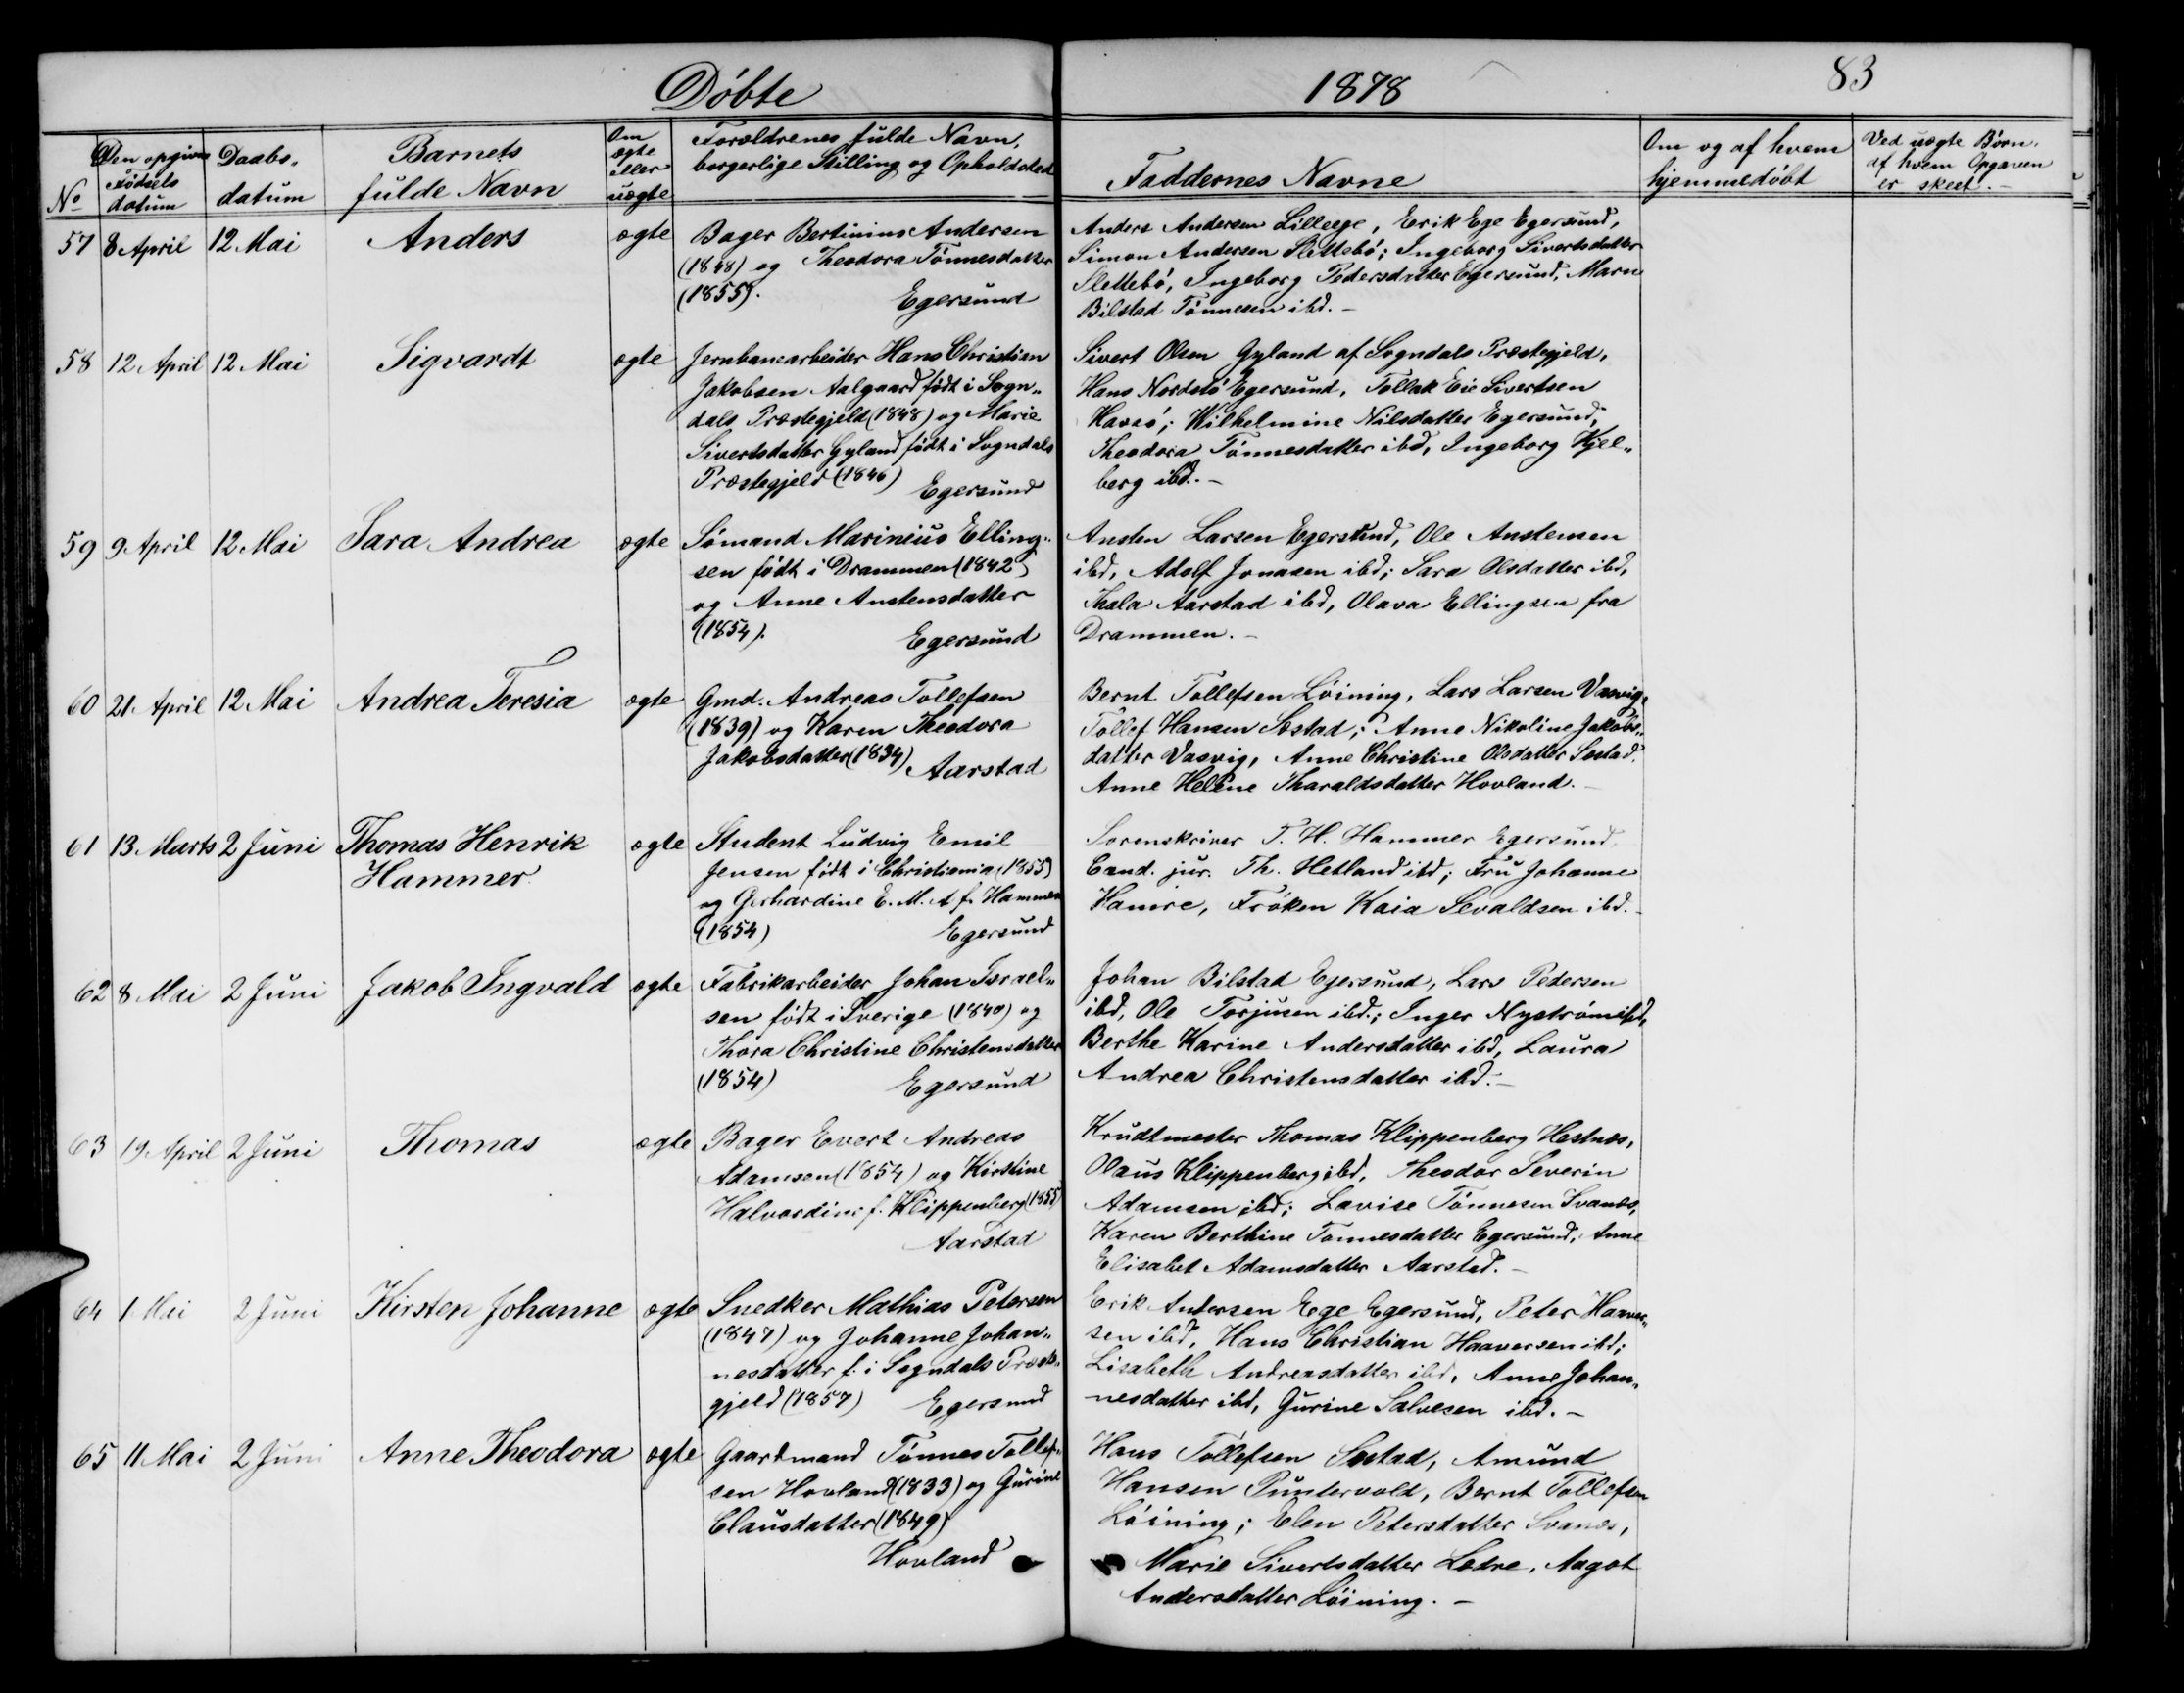 Döbte 1878 83
No
Den opgivne Fødsels datum
Daabs datum
Barnets fulde Navn
Om ægte eller uægte
Forældrenes fulde Navn, borgerlige Stilling og Opholdssted
Faddernes Navne
Om og af hvem hjemmedöbt
Ved uægte Börn, af hvem Opgaven er skeet.-
57 8 April 12 Mai Anders ægte
Bager Bertinius Andersen
(1848) og Theodora Tönnesdatter
(1855). Egersund
Anders Andersen Lilleege, Erik Ege Egersund,
Simon Andersen Slettebö; Ingeborg Sivertsdatter
Slettebö, Ingeborg Pedersdatter Egersund, Maren
Bilstad Tönnesen ibd. -
58 12 April 12 Mai Sigvardt ægte
Jernbanearbeider Hans Christian
Jakobsen Aalgaard födt i Sogn„
dals Præstegjeld (1848) og Marie
Sivertsdatter Gyland födt i Sogndals
Præstegjeld (1846) Egersund
Sivert Olsen Gyland af Sogndals Præstegjeld,
Hans Nordstö Egersund, Tollak Eie Sivertsen
Havsö; Wilhelmine Nilsdatter Egersund,
Theodora Tönnesdatter ibd, Ingeborg Kjel„
berg ibd. -
59 9 April 12 Mai Sara Andrea ægte
Sömand Marinius Elling„
sen födt i Drammen (1842)
og Anne Austensdatter
(1854). Egersund
Austen Larsen Egersund, Ole Austensen
ibd, Adolf Jonasen ibd; Sara Olsdatter ibd,
Thala Aarstad ibd, Olava Ellingsen fra
Drammen. -
60 21 April 12 Mai Andrea Teresia ægte
Gmd. Andreas Tollefsen
(1839) og Karen Theodora
Jakobsdatter (1834) Aarstad
Bernt Tollefsen Löining, Lars Larsen Vasvig,
Tollef Hansen Sæstad; Anne Nikoline Jakobs„
datter Vasvig, Anne Christine Olsdatter Sæstad,
Anne Helene Tharaldsdatter Hovland. -
61 13 Marts 2 Juni Thomas Henrik Hammer ægte
Student Ludvig Emil
Jensen födt i Christiania (1855)
og Gerhardine E. M. A f. Hammer
(1854) Egersund
Sorenskriver T. H. Hammer Egersund,
Cand. jur. Th. Hetland ibd; Fru Johanne
Hamre, Fröken Kaia Sevaldsen ibd. -
62 8 Mai 2 Juni Jakob Ingvald ægte
Fabrikarbeider Johan Israel„
sen födt i Sverige (1840) og
Thora Christine Christensdatter
(1854) Egersund
Johan Bilstad Egersund, Lars Pedersen
ibd, Ole Torjusen ibd.; Inger Nyström ibd,
Berthe Karine Andersdatter ibd, Laura
Andrea Christensdatter ibd. -
63 19 April 2 Juni Thomas ægte
Bager Evert Andreas
Adamsen (1854) og Kirstine
Halvardine f. Klippenberg (1855)
Aarstad
Krudtmester Thomas Klippenberg Hestnæs,
Olaus Klippenberg ibd, Theodor Severin
Adamsen ibd; Lavise Tönnesen Svanæs,
Karen Berthine Tønnesdatter Egersund, Anne
Elisabet Adamsdatter Aarstad. -
64 1 Mai 2 Juni Kirsten Johanne ægte
Snedker Mathias Petersen
(1847) og Johanne Johan„
nesdatter f. i Sogndals Præste„
gjeld (1857) Egersund
Erik Andersen Ege Egersund, Peter Haaver„
sen ibd, Hans Christian Haaversen ibd;
Lisabeth Andreasdatter ibd, Anne Johan„
nesdatter ibd, Gurine Salvesen ibd. -
65 11 Mai 2 Juni Anne Theodora ægte
Gaardmand Tönnes Tollef„
sen Hovland (1833) og Gurine
Clausdatter (1849)
Hovland
Hans Tollefsen Sæstad, Amund
Hansen Puntervold, Bernt Tollefsen
Löining; Elen Petersdatter Svanæs,
Marie Sivertsdatter Ledre, Aagot
Andersdatter Löining. -